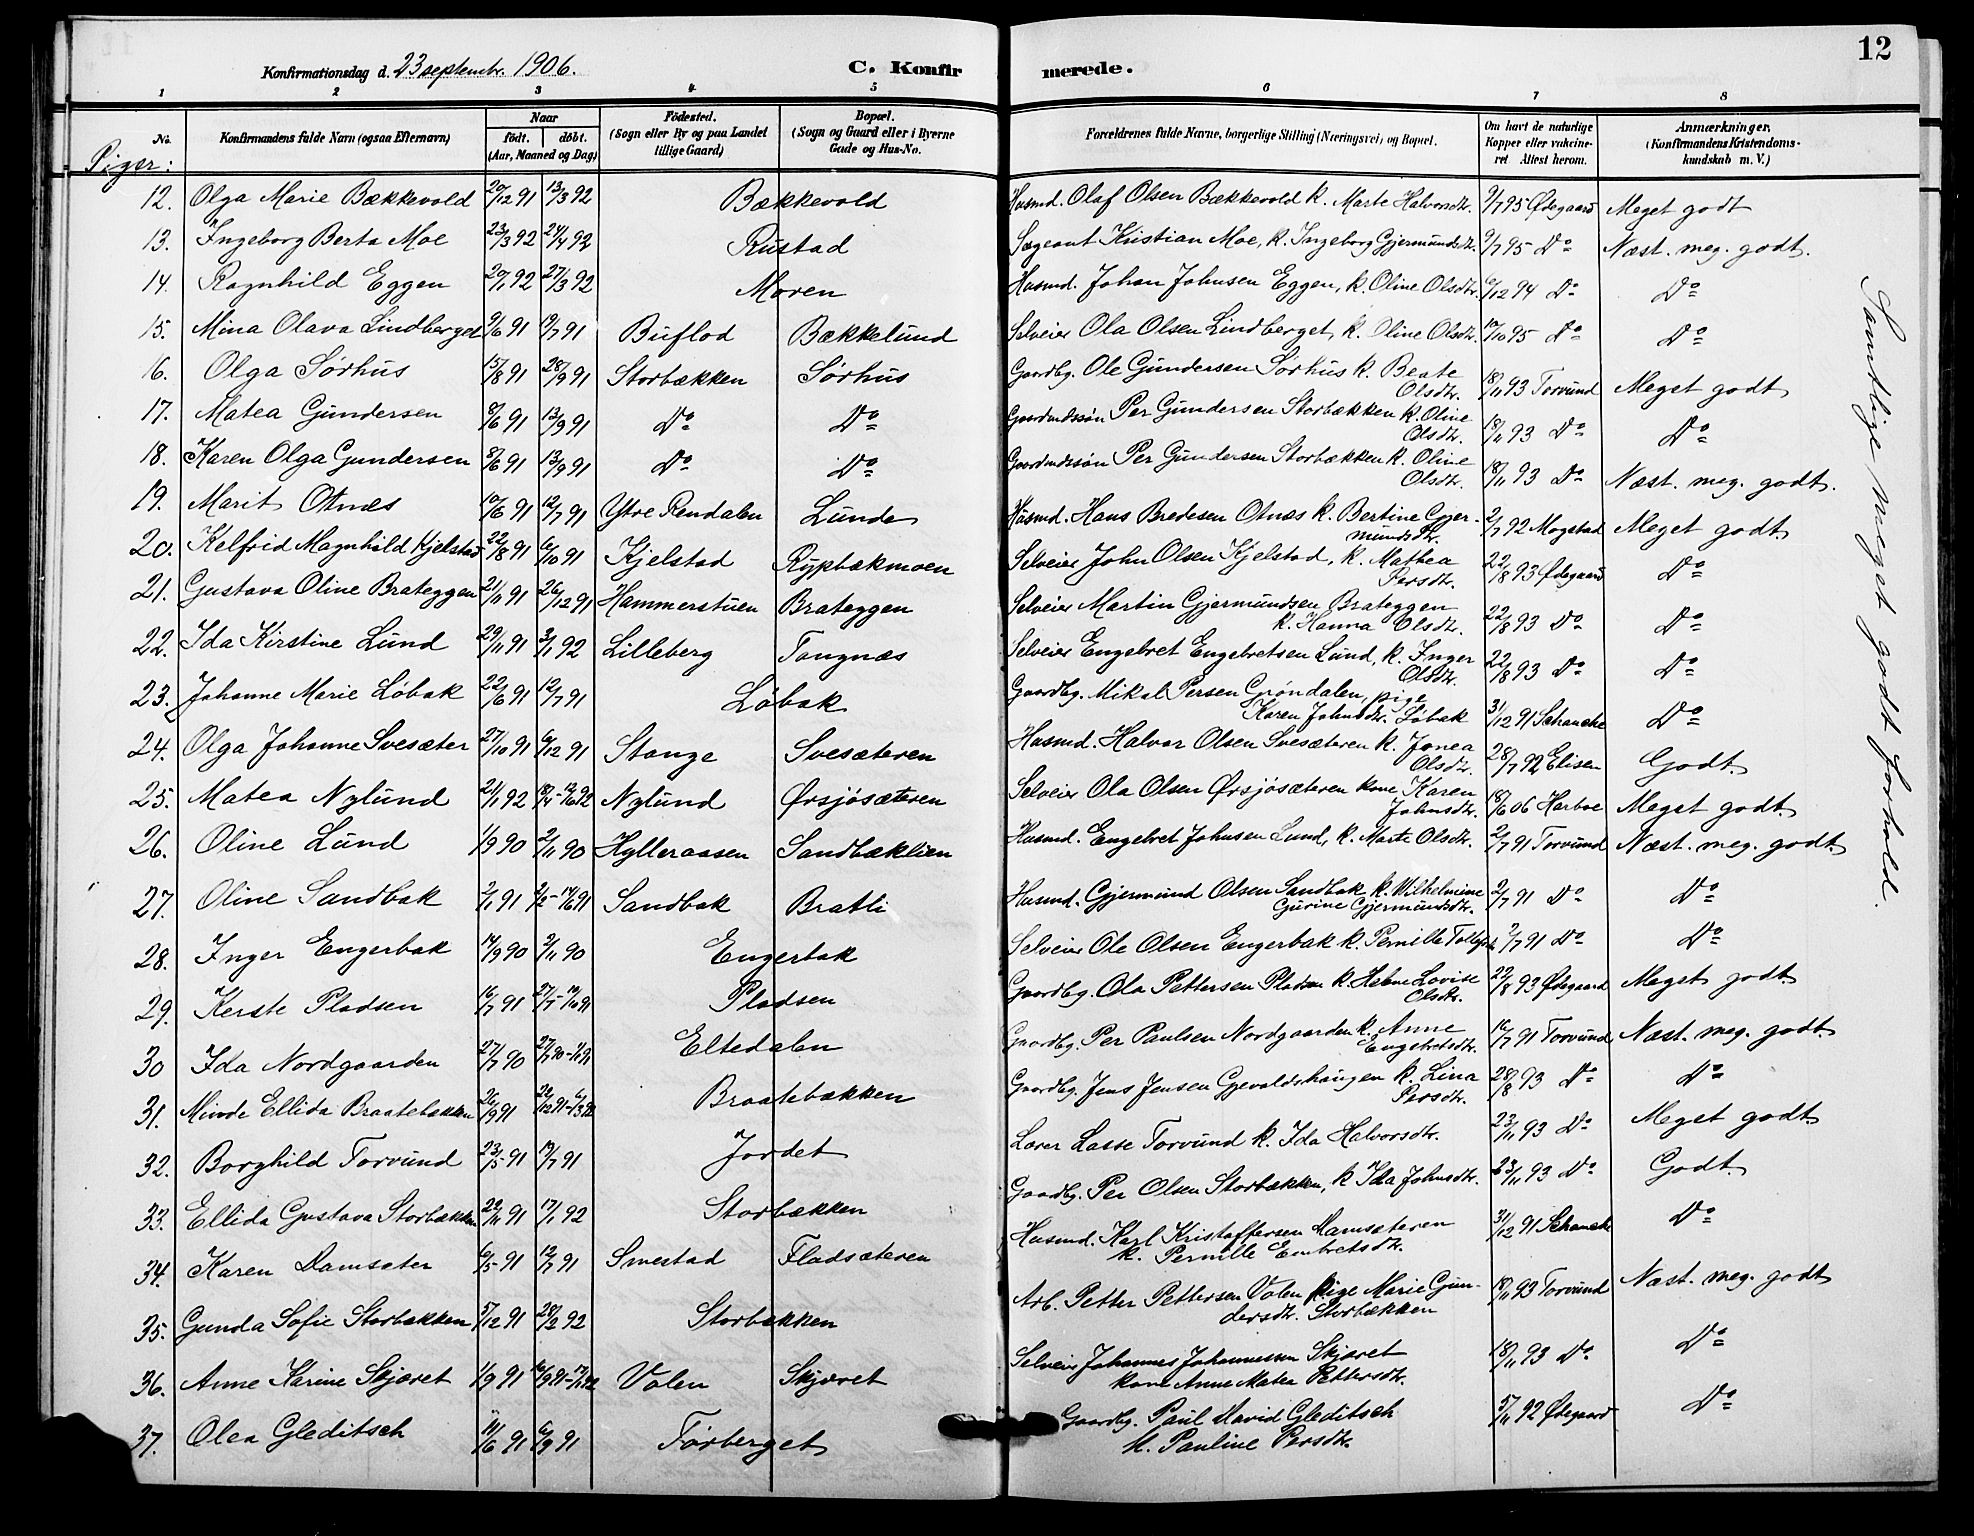 Konfirmationsdag d. 23 septembr. 1906. C. Konfirmerede. 12
1 2 3 4 5 6 7 8
No. Konfirmandens fulde Navn (ogsaa Efternavn) Naar født. døbt. (Aar, Maaned og Dag) Födested. (Sogn eller By og paa Landet tillige Gaard) Bopæl. (Sogn og Gaard eller i Byerne Gade og Hus-No. Forældrenes fulde Navne, borgerlige Stilling (Næringsvei) og Bopæl. Om havt de naturlige Kopper eller vakcineret Attest herom. Anmærkninger. (Konfirmandens Kristendomskundskab m. V.)
Piger:
12. Olga Marie Bækkevold 20/12 91 13/3 92 Bækkevold Husmd. Olaf Olsen Bækkevold k. Marte Halvorsdtr. 9/7 95 Ødegaard Meget godt
13. Ingeborg Berta Moe 23/3 92 24/4 92 Rustad Sergeant Kristian Moe, k. Ingeborg Gjermundsdtr. 9/7 95 Do Næst. meg. godt.
14. Ragnhild Eggen 20/1 92 27/3 92 Moren Husmd. Johan Johnsen Eggen, k. Oline Olsdtr. 94 Do Do
15. Mina Olava Lindberget 9/6 91 91 Buflod Bækkelund Selveier Ola Olsen Lindberget, k. Oline Olsdtr. 95 Do Do
16. Olga Sørhus 15/8 91 28/9 91 Storbækken Sørhus Gaardbg. Ole Gundersen Sørhus k. Beate
Olsdtr. 18/11 93 Torvund Meget godt
17. Matea Gundersen 8/6 91 13/9 91 Do Do Gaardmdssøn Per Gundersen Storbækken k. Oline
Olsdtr. 18/11 93 Do Do
18. Karen Olga Gundersen 8/6 91 13/9 91 Do Do Gaardmdssøn Per Gundersen Storbækken k. Oline
Olsdtr. 18/11 93 Do Næst. meg. godt.
19. Marit Otnæs 10/6 91 12/7 91 Ytre Rendalen Lunde Husmd. Hans Bredesen Otnæs k. Bertine Gjer-
mundsdtr. 2/7 92 Mogstad Meget godt
20. Kelfrid Magnhild Kjelstad 22/8 91 6/10 91 Kjelstad Rypbakmoen Selveier John Olsen Kjelstad, k. Mathea
Persdtr. 22/8 93 Ødegaard Do
21. Gustava Oline Brateggen 21/11 91 26/12 91 Hammerstuen Brateggen Selveier Martin Gjermundsen Brateggen
k. Hanna Olsdtr. 22/8 93 Do Do
22. Ida Kirstine Lund 29/11 91 3/1 92 Lilleberg Tangnæs Selveier Engebret Engebretsen Lund, k. Inger
Olsdtr. 22/8 93 Do Do
23. Johanne Marie Løbak 22/6 91 12/7 91 Løbak Gaardbg. Mikal Persen Grøndalen, pige
Karen Johnsdtr. Løbak 31/12 91 Schancke Do
24. Olga Johanne Svesæter 27/10 91 6/12 91 Stange Svesæteren Husmd. Halvor Olsen Svesæteren k. Jonea
Olsdtr. 28/7 92 Elisen Godt.
25. Matea Nylund 21/1 92 Nylund Ørsjøsæteren Selveier Ola Olsen Ørsjøsæteren kone Karen
Johnsdtr. 18/6 06 Harboe Meget godt.
26. Oline Lund 1/9 90 2/11 90 Hylleraasen Sandbæklien Husmd. Engebret Johnsen Lund, k. Marte Olsdtr. 2/7 91 Torvund Næst. meg. godt.
27. Oline Sandbak 2/1 91 Sandbak Bratli Husmd. Gjermund Olsen Sandbak k. Wilhelmine
Gurine Gjermundsdtr. 2/7 91 Do Do
28. Inger Engerbak 14/9 90 2/11 90 Engerbak Selveier Ole Olsen Engerbak k. Pernille 2/7 91 Do Do
29. Kerste Pladsen 16/7 91 Pladsen Gaardbg. Ola Pettersen Pladsen k. Helene Lovise
Olsdtr. 22/8 93 Ødegaard Meget godt.
30 Ida Nordgaarden 27/7 90 Eltedalen Gaardbg. Per Paulsen Nordgaarden k. Anne
Engebretsdtr. 16/7 91 Torvund Næst. meg. godt.
31. Ellida Braatebækken 26/9 91 Braatebækken Gaardbg. Jens Jensen Gjevaldshaugen k. Lina
Persdtr. 28/8 93 Do Do
32. Borghild Torvund 23/5 91 91 Jordet Lærer Lasse Torvund k. Ida Halvorsdtr. 23/11 93 Do Meget godt.
33. Ellida Gustava Storbækken 22/11 91 17/1 92 Storbækken Gaardbg. Per Olsen Storbækken, k Ida Johnsdtr. 23/11 93 Do Godt.
34. Karen Damsæter 6/5 91 12/7 91 Smestad Fladsæteren Husmd. Karl Kristoffersen Damsæteren
k. Pernille Embretsdtr. 31/12 91 Schancke Do
35. Gunda Sofie Storbækken 5/12 91 28/2 92 Storbækken Arb. Petter Pettersen Volen pige Marie Gun-
dersdtr. Storbækken 18/11 93 Torvund Næst. meg. godt
36. Anne Karine Skjæret 1/9 91 Volen Skjæret Selveier Johannes Johannessen Skjæret
kone Anne Matea Pettersdtr. 18/11 93 Do Do
37. Olea Gleditsch 11/6 91 6/9 91 Førberget Gaardbg. Paul David Gleditsch
k. Pauline Persdtr. 5/11 92 Ødegaard Do
Samtlige meget godt forhold.